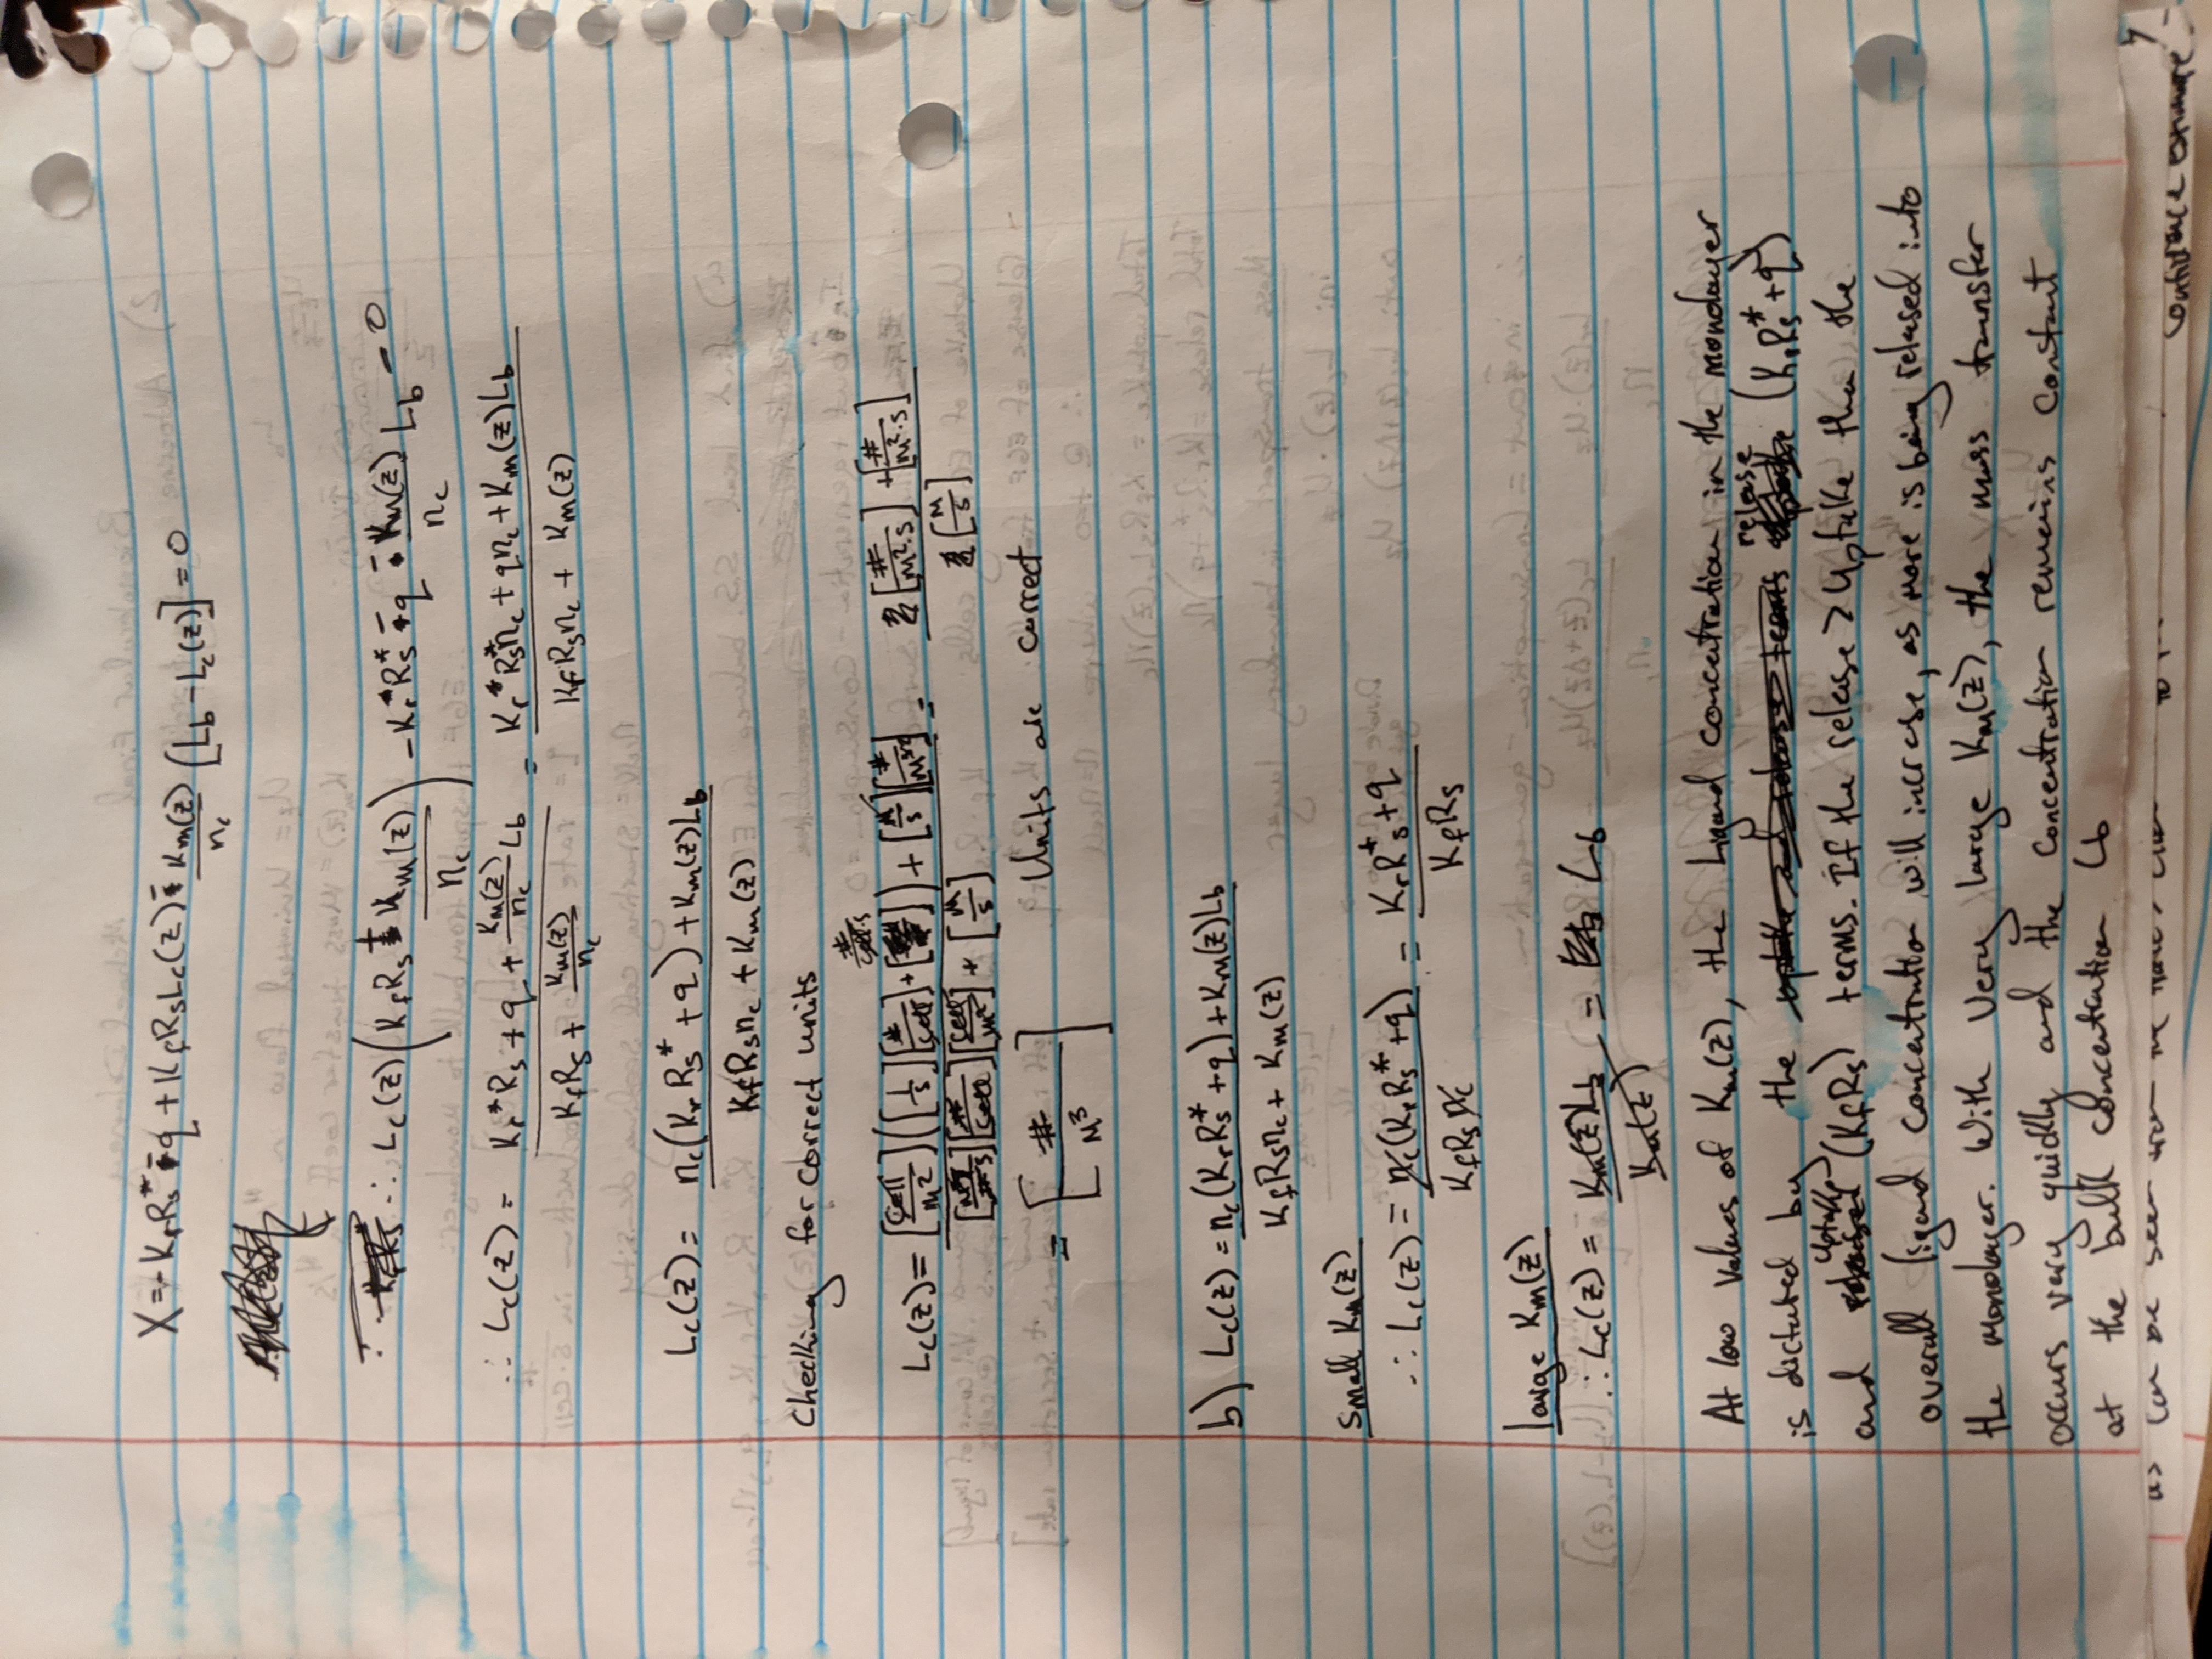 X = -KrRs* - q + KfRsLc(z) - Km(z)/nc [Lb - Lc(z)] = 0
∴ Lc(z) (KfRs + Km(z)/nc) - Kr*Rs* - q - Km(z)/nc Lb = 0
∴ Lc(z) = (Kr*Rs + q + Km(z)/nc Lb)/(KfRs + Km(z)/nc) = (Kr*Rs*nc + qnc + Km(z)Lb)/(KfRsnc + Km(z))
Lc(z) = (nc(KrRs* + q) + Km(z)Lb)/(KfRsnc + Km(z))
Checking for correct units
Lc(z) = ([cell/m²]([1/s][#/cell] + [#/cell·s]) + [M/s][#/m³])/([m³/#·s][#/cell][cell/m²] + [M/s]) = ([#/m²·s] + [#/m²·s])/([M/s])
= [#/M³] Units are correct
b) Lc(z) = (nc(KrRs* + q) + Km(z)Lb)/(KfRsnc + Km(z))
small Km(z)
∴ Lc(z) = (nc(KrRs* + q))/(KfRsnc) = (KrR*s + q)/(KfRs)
large Km(z)
∴ Lc(z) = (Km(z)Lb)/(Km(z)) = Lb
At low values of Km(z), the Ligand concentration in the monolayer
is dictated by the release (KrRs* + q)
and uptake (KfRs) terms. If the release > uptake then the
overall ligand concentration will increase, as more is being released into
the monolayer. With very large Km(z), the mass transfer
occurs very quickly and the concentration remains constant
at the bulk concentration Lb
as can be seen from the
confidence